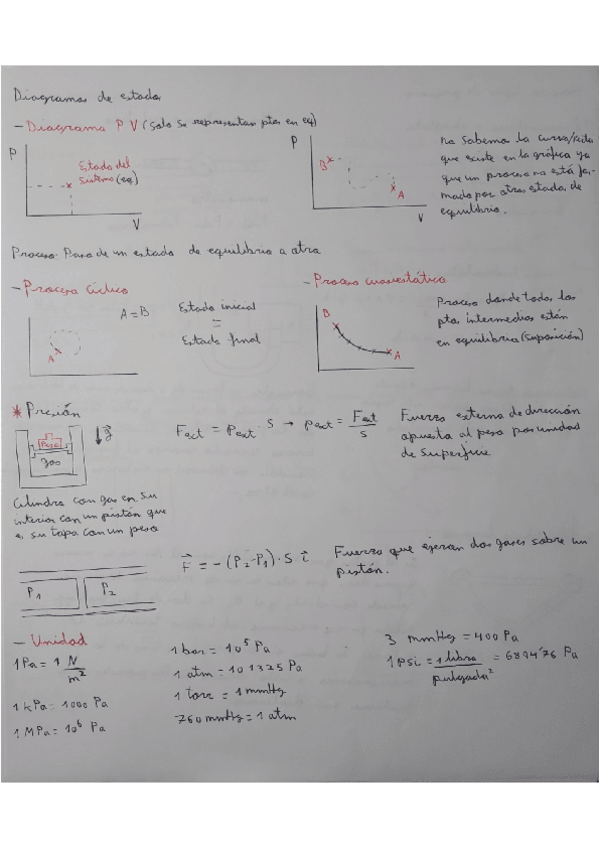 Diagramas de estado
- Diagrama P V (solo se representan ptos en eq)
P
Estado del
sistema (eq)
V
P
B
A
V
no sabemos la curva/
que existe en la gráfica ya
que un proceso no está for-
mado por otros estados de
equilibrio.
Proceso: Paso de un estado de equilibrio a otro
- Proceso cíclico
A = B
A
Estado inicial
=
Estado final
- Proceso cuasiestático
B
A
Proceso donde todos los
ptos intermedios están
en equilibrio (suposición)
* Presión
Peso
gas
g
Fext = Pext · S → pext = Fext / S
Fuerza externa de dirección
opuesta al peso por unidad
de superficie
Cilindro con gas en su
interior con un pistón que
es su tapa con un peso
P1
P2
F = -(P2-P1) · S i
Fuerza que ejercen dos gases sobre un
pistón.
- Unidad
1 Pa = 1 N / m²
1 kPa = 1000 Pa
1 MPa = 10⁶ Pa
1 bar = 10⁵ Pa
1 atm = 101325 Pa
1 torr = 1 mmHg
760 mmHg = 1 atm
3 mmHg = 400 Pa
1 psi = 1 libra / pulgada² = 6894'76 Pa